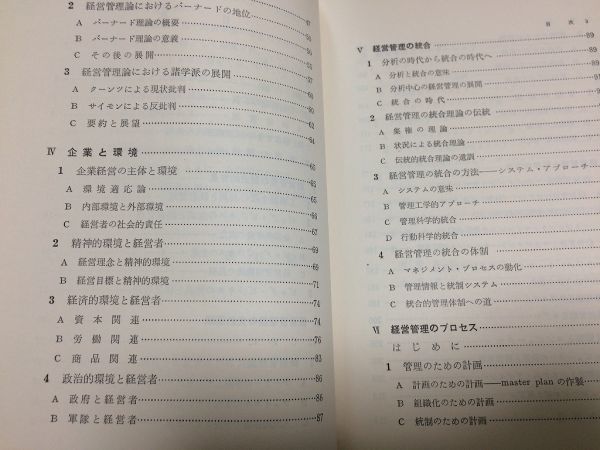 2 経営管理論におけるバーナードの地位
A バーナード理論の概要
B バーナード理論の意義
C その後の展開
3 経営管理論における諸学派の展開
A クーンツによる現状批判
B サイモンによる反批判
C 要約と展望
Ⅳ 企業と環境 65
1 企業経営の主体と環境 65
A 環境適応論 65
B 内部環境と外部環境 66
C 経営者の社会的責任 67
2 精神的環境と経営者 69
A 経営理念と精神的環境 69
B 経営目標と精神的環境 71
3 経済的環境と経営者 74
A 資本関連 74
B 労働関連 76
C 商品関連 83
4 政治的環境と経営者 86
A 政府と経営者 86
B 軍隊と経営者 87
目次 3
Ⅴ 経営管理の統合 89
1 分析の時代から統合の時代へ 89
A 分析と統合の意味
B 分析中心の経営管理の展開
C 統合の時代
2 経営管理の統合理論の伝統
A 集権の理論
B 状況による統合理論
C 伝統的統合理論の遺訓
3 経営管理の統合の方法――システム・アプローチ
A システムの意味
B 管理工学的アプローチ
C 管理科学的統合
D 行動科学的統合
4 経営管理の統合の体制
A マネジメント・プロセスの動化
B 管理情報と統制システム
C 統合的管理体制への道
Ⅵ 経営管理のプロセス
はじめに
1 管理のための計画
A 計画のための計画――master plan の作製
B 組織化のための計画
C 統制のための計画